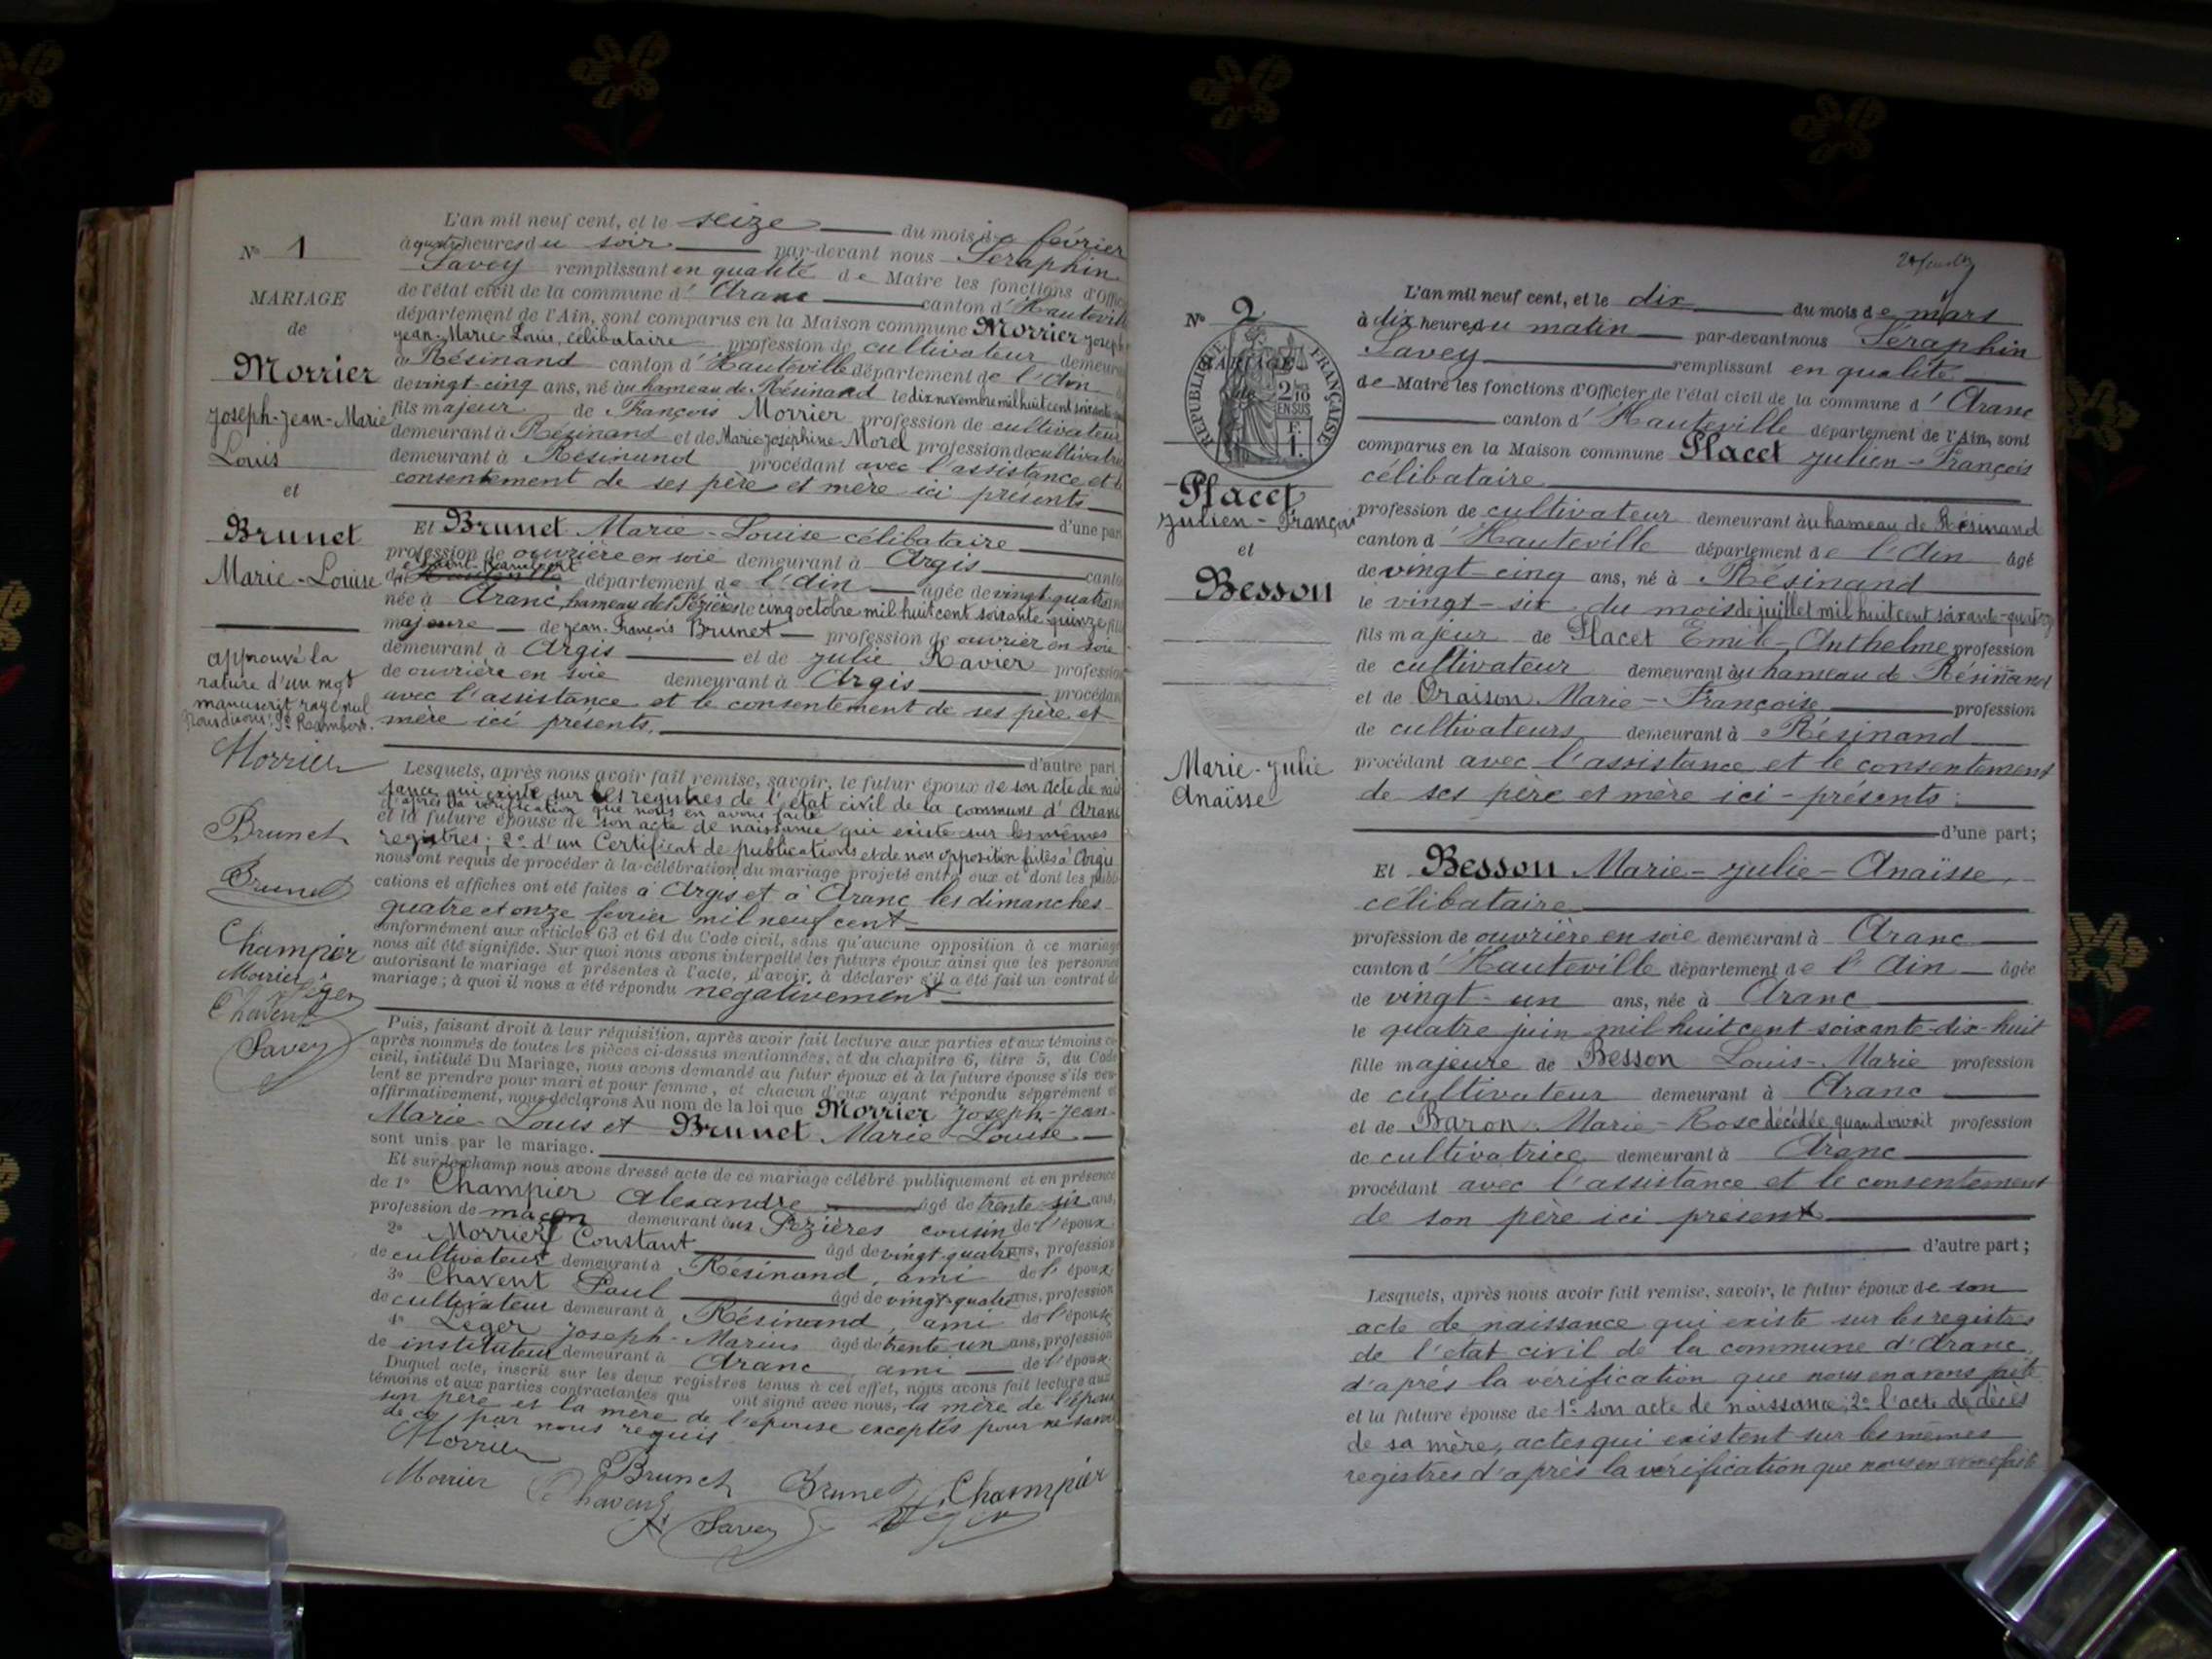 N° 1
MARIAGE
de
Morrier
Joseph-Jean-Marie
Louis
et
Brunet
Marie-Louise
approuvé la
rature d'un mot
manuscrit rayé nul
Nous disons: St Rambert.
Morrier
Brunet
Brunet
Champier
Morrier
Léger
Chavent
Savey
L'an mil neuf cent, et le seize du mois de février
à quatre heures du soir par-devant nous Séraphin
Savey remplissant en qualité de Maire les fonctions d'Offic
de l'état civil de la commune d'Aranc canton d'Hautevill
département de l'Ain, sont comparus en la Maison commune Morrier Joseph
Jean-Marie-Louis, célibataire profession de cultivateur demeura
à Résinand canton d'Hauteville département de l'Ain
de vingt-cinq ans, né au hameau de Résinand le dix novembre mil huit cent soixante
fils majeur de François Morrier profession de cultivateur
demeurant à Résinand et de Marie Joséphine Morel profession de cultivatrice
demeurant à Résinand procédant avec l'assistance et le
consentement de ses père et mère ici présents
d'une part
Et Brunet Marie-Louise célibataire
profession de ouvrière en soie demeurant à Argis canto
de Saint-Rambert département de l'Ain âgée de vingt-quatre
née à Aranc, hameau des Pézières le cinq octobre mil huit cent soixante-quinze fille
majeure de Jean-François Brunet profession de ouvrier en soie
demeurant à Argis et de Julie Ravier profession
de ouvrière en soie demeurant à Argis procédan
avec l'assistance et le consentement de ses père et
mère ici présents.
d'autre part
Lesquels, après nous avoir fait remise, savoir, le futur époux de son acte de nais
sance qui existe sur les registres de l'état civil de la commune d'Aranc
d'après la vérification que nous en avons faite
et la future épouse de son acte de naissance qui existe sur les mêmes
registres; 2° d'un Certificat de publications et de non opposition faites à Argis
nous ont requis de procéder à la célébration du mariage projeté entre eux et dont les publi
cations et affiches ont été faites à Argis et à Aranc les dimanches
quatre et onze février mil neuf cent
conformément aux articles 63 et 64 du Code civil, sans qu'aucune opposition à ce mariage
nous ait été signifiée. Sur quoi nous avons interpellé les futurs époux ainsi que les personnes
autorisant le mariage et présentes à l'acte, d'avoir à déclarer s'il a été fait un contrat de
mariage; à quoi il nous a été répondu négativement
Puis, faisant droit à leur réquisition, après avoir fait lecture aux parties et aux témoins ci-
après nommés de toutes les pièces ci-dessus mentionnées, et du chapitre 6, titre 5, du Code
civil, intitulé Du Mariage, nous avons demandé au futur époux et à la future épouse s'ils veu-
lent se prendre pour mari et pour femme, et chacun d'eux ayant répondu séparément et
affirmativement, nous déclarons Au nom de la loi que Morrier Joseph-Jean-
Marie-Louis et Brunet Marie-Louise
sont unis par le mariage.
Et sur-le-champ nous avons dressé acte de ce mariage célébré publiquement et en présence
de 1° Champier Alexandre âgé de trente-six ans,
profession de maçon demeurant aux Pézières cousin de l'époux
2° Morrier Constant âgé de vingt-quatre ans, profession
de cultivateur demeurant à Résinand, ami de l'époux
3° Chavent Paul âgé de vingt-quatre ans, profession
de cultivateur demeurant à Résinand, ami de l'épouse
4° Léger Joseph-Marius âgé de trente-un ans, profession
de instituteur demeurant à Aranc ami de l'époux
Duquel acte, inscrit sur les deux registres tenus à cet effet, nous avons fait lecture aux
témoins et aux parties contractantes qui ont signé avec nous, la mère de l'époux
son père et la mère de l'épouse exceptés pour ne savoir
de ce par nous requis
Morrier
Morrier Brunet Brunet Champier
Chavent Savey Léger
N° 2
RÉPUBLIQUE FRANÇAISE
MARIAGE
de
2/10
EN SUS
F.
1.
Placet
Julien-François
et
Besson
Marie-Julie
Anaïsse
L'an mil neuf cent, et le dix du mois de mars
à dix heures du matin par-devant nous Séraphin
Savey remplissant en qualité
de Maire les fonctions d'Officier de l'état civil de la commune d'Aranc
canton d'Hauteville département de l'Ain, sont
comparus en la Maison commune Placet Julien-François
célibataire
profession de cultivateur demeurant au hameau de Résinand
canton d'Hauteville département de l'Ain âgé
de vingt-cinq ans, né à Résinand
le vingt-six du mois de juillet mil huit cent soixante-quatorze
fils majeur de Placet Emile-Anthelme profession
de cultivateur demeurant au hameau de Résinand
et de Oraison Marie-Françoise profession
de cultivateurs demeurant à Résinand
procédant avec l'assistance et le consentement
de ses père et mère ici-présents.
d'une part;
Et Besson Marie-Julie-Anaïsse,
célibataire
profession de ouvrière en soie demeurant à Aranc
canton d'Hauteville département de l'Ain âgée
de vingt-un ans, née à Aranc
le quatre juin mil huit cent soixante-dix-huit
fille majeure de Besson Louis-Marie profession
de cultivateur demeurant à Aranc
et de Baron Marie-Rose décédée, quand vivait profession
de cultivatrice demeurant à Aranc
procédant avec l'assistance et le consentement
de son père ici présent
d'autre part;
Lesquels, après nous avoir fait remise, savoir, le futur époux de son
acte de naissance qui existe sur les registres
de l'état civil de la commune d'Aranc,
d'après la vérification que nous en avons faite
et la future épouse de 1° son acte de naissance; 2° l'acte de décès
de sa mère, actes qui existent sur les mêmes
registres d'après la vérification que nous en avons faite